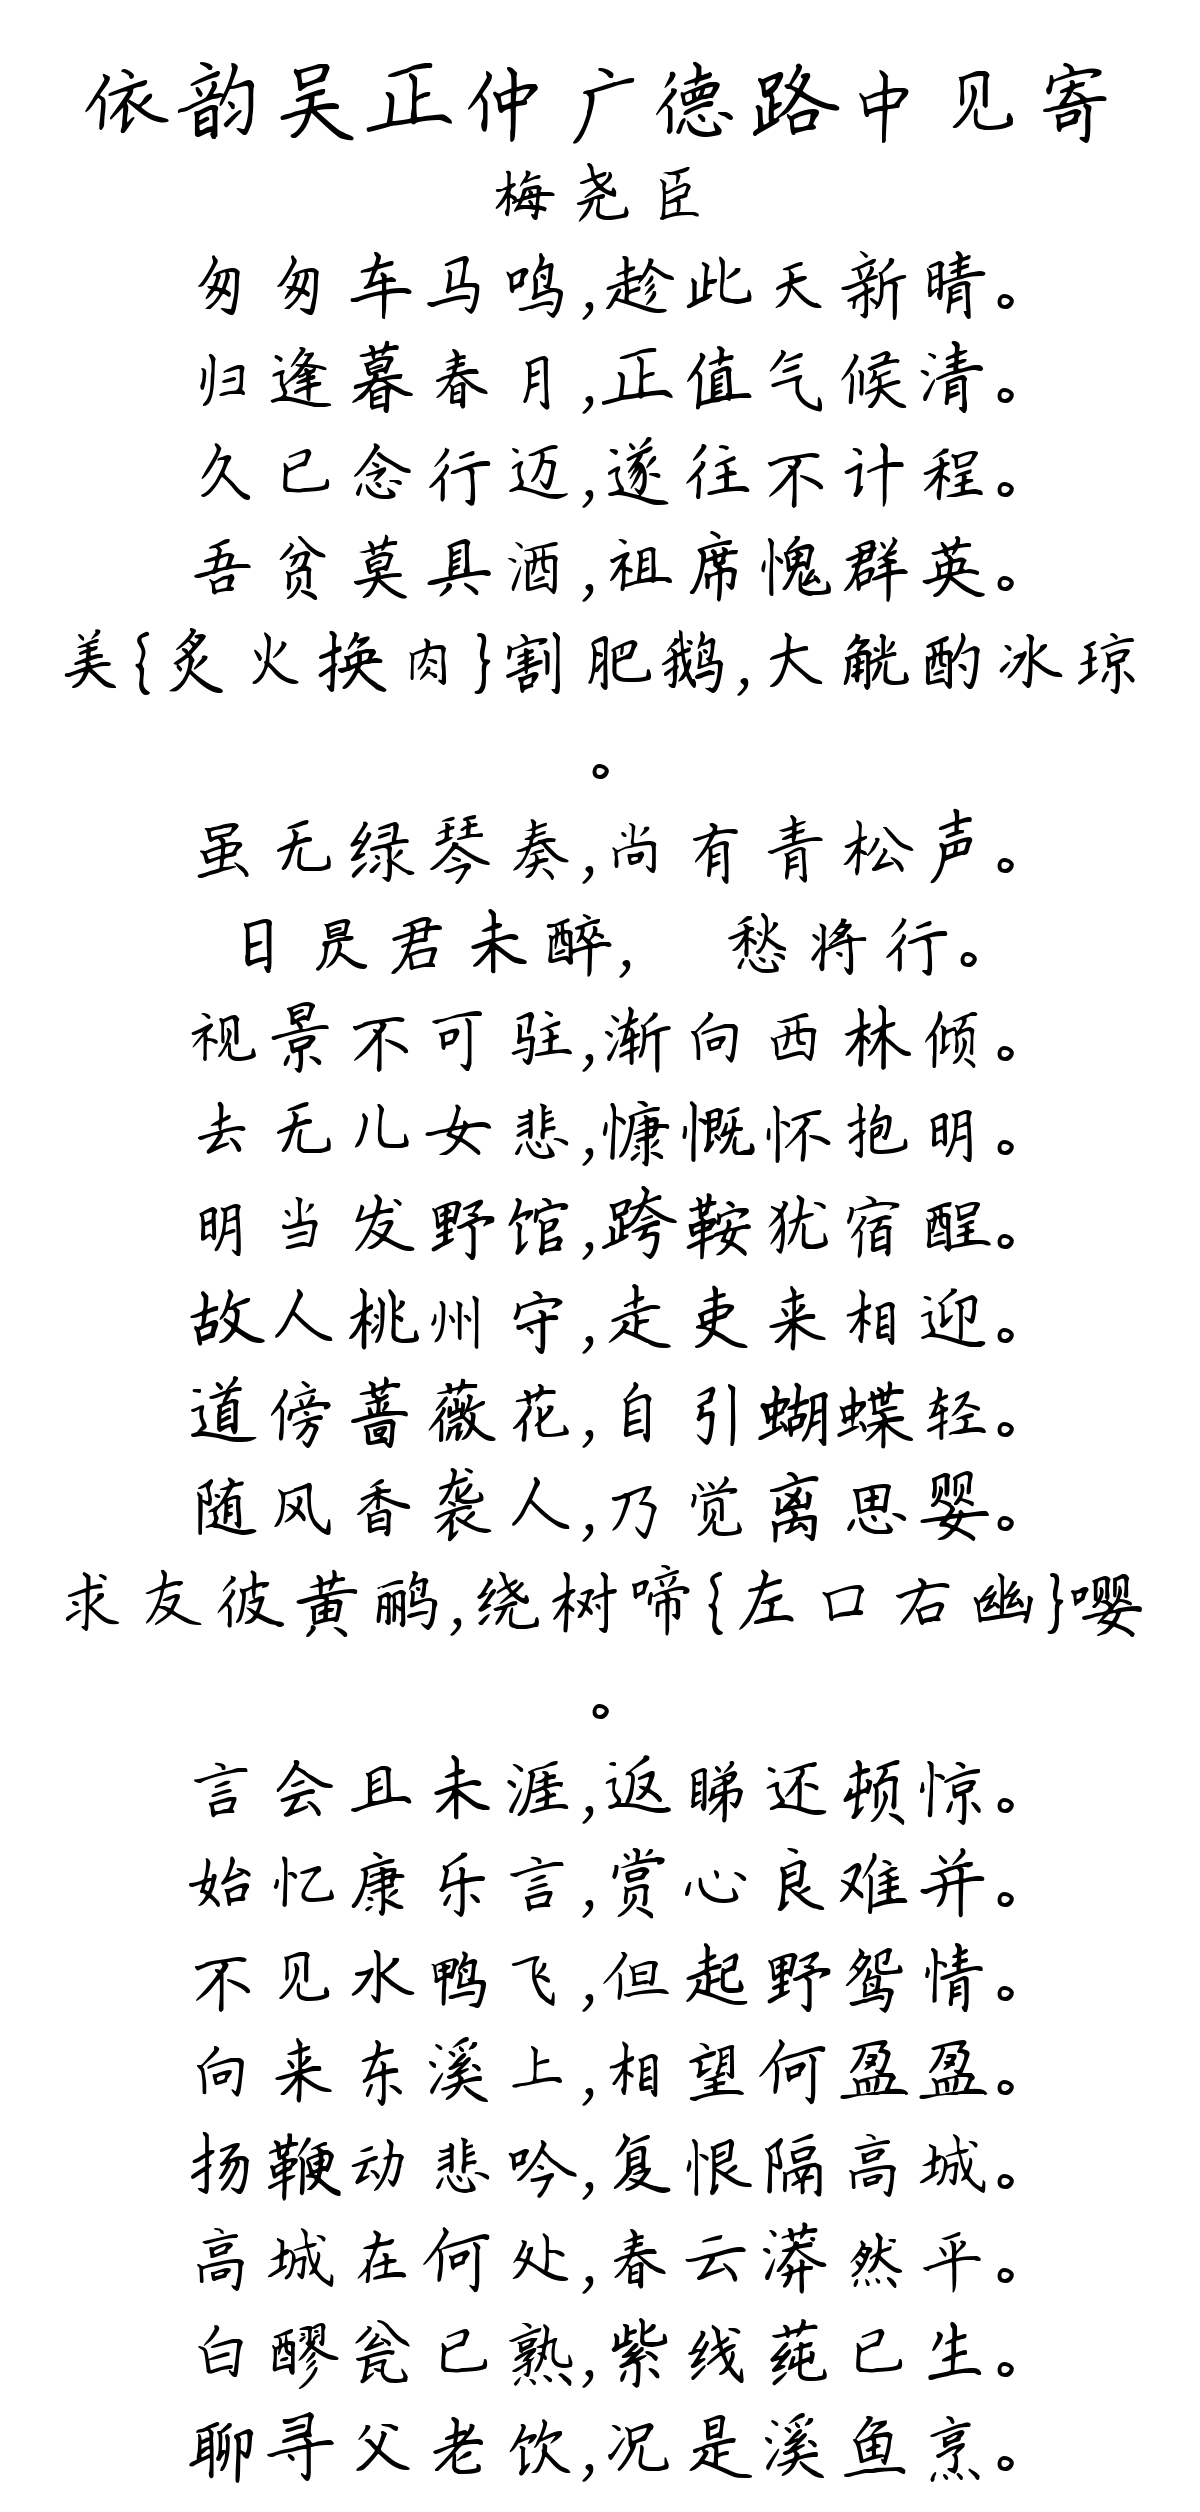 依韵吴正仲广德路中见寄
梅尧臣
匆匆车马鸣,趁此天新晴。
归逢暮春月,正值气候清。
久已念行迈,遂往不计程。
吾贫莫具酒,祖席愧群英。
美{炙火换肉}割肥鹅,大觥酌冰琼
。
虽无绿琴奏,尚有青松声。
日昃君未醉, 愁将行。
视景不可驻,渐向西林倾。
去无儿女悲,慷慨怀抱明。
明当发野馆,跨鞍犹宿酲。
故人桃州守,走吏来相迎。
道傍蔷薇花,自引蝴蝶轻。
随风香袭人,乃觉离思婴。
求友彼黄鹂,绕树啼{左口右幽}嘤
。
言会且未涯,返睇还顿惊。
始忆康乐言,赏心良难并。
不见水鸭飞,但起野鸳情。
向来东溪上,相望何盈盈。
扬鞭动悲吟,复恨隔高城。
高城在何处,春云漭然平。
白醪瓮已熟,紫线莼已生。
聊寻父老饮,况是溪鱼烹。